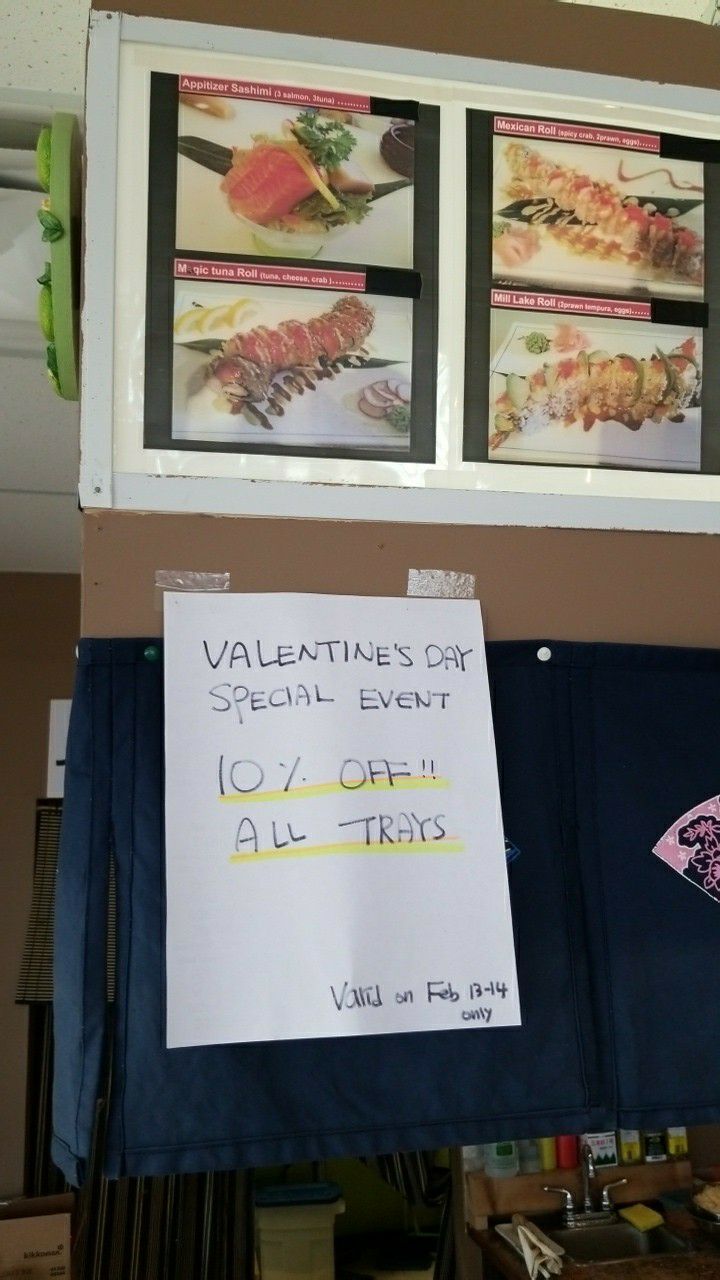 Appitizer Sashimi (3 salmon, 3tuna) ..........
Mexican Roll (spicy crab, 2prawn, eggs)......
Magic tuna Roll (tuna, cheese, crab )......
Mill Lake Roll (2prawn tempura, eggs)......
VALENTINE'S DAY
SPECIAL EVENT
10% OFF!!
ALL TRAYS
Valid on Feb 13-14
only
kikkoman